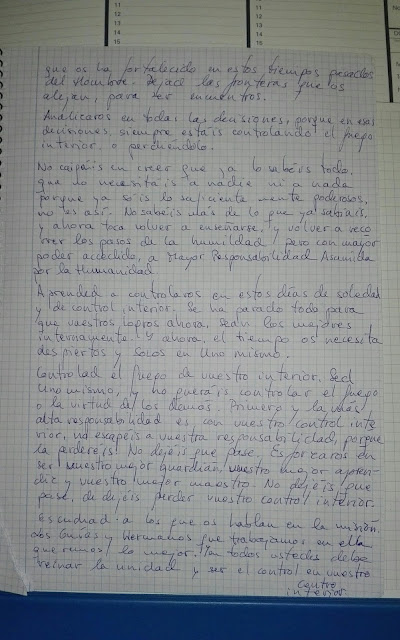 11
12
13
14
15
11
12
13
14
15
que os ha fortalecido en estos tiempos pesados
del Hombre. Dejad las fronteras que os
alejan, para ser encuentros.
Analizaros en todas las decisiones, porque en esas
decisiones, siempre estáis controlando el fuego
interior, o perdiéndolo.
No caigáis en creer que ya lo sabéis todo,
que no necesitáis a nadie ni a nada
porque ya sois lo suficiente mente poderosos,
no es así. No sabéis más de lo que ya sabíais,
y ahora toca volver a enseñarse, y volver a reco
rrer los pasos de la humildad, pero con mayor
poder accedido, a Mayor Responsabilidad Asumida
por la Humanidad.
Aprended a controlaros en estos días de soledad
y de control interior, se ha parado todo para
que vuestros logros ahora, sean los mejores
internamente. Y ahora, el tiempo os necesita
despiertos y solos en Uno mismo.
Controlad el fuego de vuestro interior, Sed
Uno mismo, y no queráis controlar el fuego
o la virtud de los demás. Primero y la más
alta responsabilidad es con vuestro control inte
rior, no escapéis a vuestra responsabilidad, porque
la perderéis. No dejéis que pase. Esforzaros en
ser vuestro mejor guardián, vuestro mejor apren-
diz y vuestro mejor maestro. No dejéis que
pase, de dejéis perder vuestro control interior.
Escuchad a los que os hablan en la misión,
los Guías y Hermanos que trabajamos en ella
queremos lo mejor. En todos ustedes debe
reinar la unidad y ser el control en vuestro
centro
interior